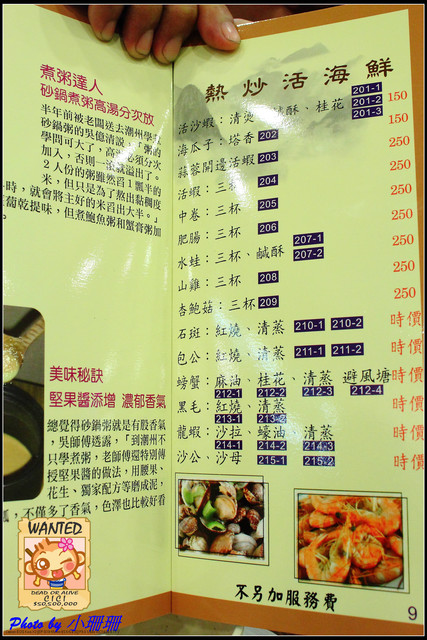 煮粥達人
砂鍋煮粥高湯分次放
半年前被老闆送去潮州學
砂鍋粥的吳億清說
學問可大了，高
加入，否則一
2人份的粥雖然舀1瓢半的
米，但只是為了熬出黏稠度
時，就會將主好的米舀出大半。」
葡乾提味，但煮鮑魚粥和蟹膏粥加
美味秘訣
堅果醬添增 濃郁香氣
總覺得砂鍋粥就是有股香氣
，吳師傅透露，「到潮州不
只學煮粥，老師傅還特別傳
授堅果醬的做法，用腰果、
花生、獨家配方等磨成泥，
，不僅多了香氣，色澤也比較好看
熱炒活海鮮
活沙蝦：清燙、鹹酥、桂花 201-1 201-2 201-3 150 150
海瓜子：塔香 202 250
蒜蓉開邊活蝦 203 250
活蝦：三杯 204 250
中卷：三杯 205 250
肥腸：三杯 206 250
水蛙：三杯、鹹酥 207-1 207-2 250
山雞：三杯 208 250
杏鮑菇：三杯 209 250
石斑：紅燒、清蒸 210-1 210-2 時價
包公：紅燒、清蒸 211-1 211-2 時價
螃蟹：麻油、桂花、清蒸 避風塘 時價
212-1 212-2 212-3 212-4
黑毛：紅燒、清蒸 時價
213-1 213-2
龍蝦：沙拉、蠔油、清蒸 時價
214-1 214-2 214-3
沙公、沙母 215-1 215-2 時價
不另加服務費
9
WANTED
DEAD OR ALIVE
CICI
$50,500,000
Photo by 小珊珊